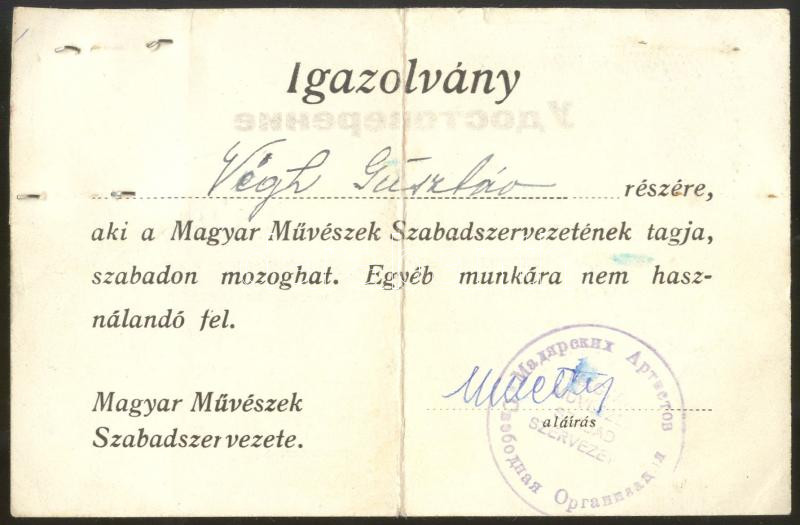 Igazolvány
Удостоверение
Végh Gusztáv részére,
aki a Magyar Művészek Szabadszervezetének tagja,
szabadon mozoghat. Egyéb munkára nem hasz-
nálandó fel.
Magyar Művészek
Szabadszervezete.
aláírás
Свободная Организация Мадярских Артистов
SZABAD
SZERVEZET